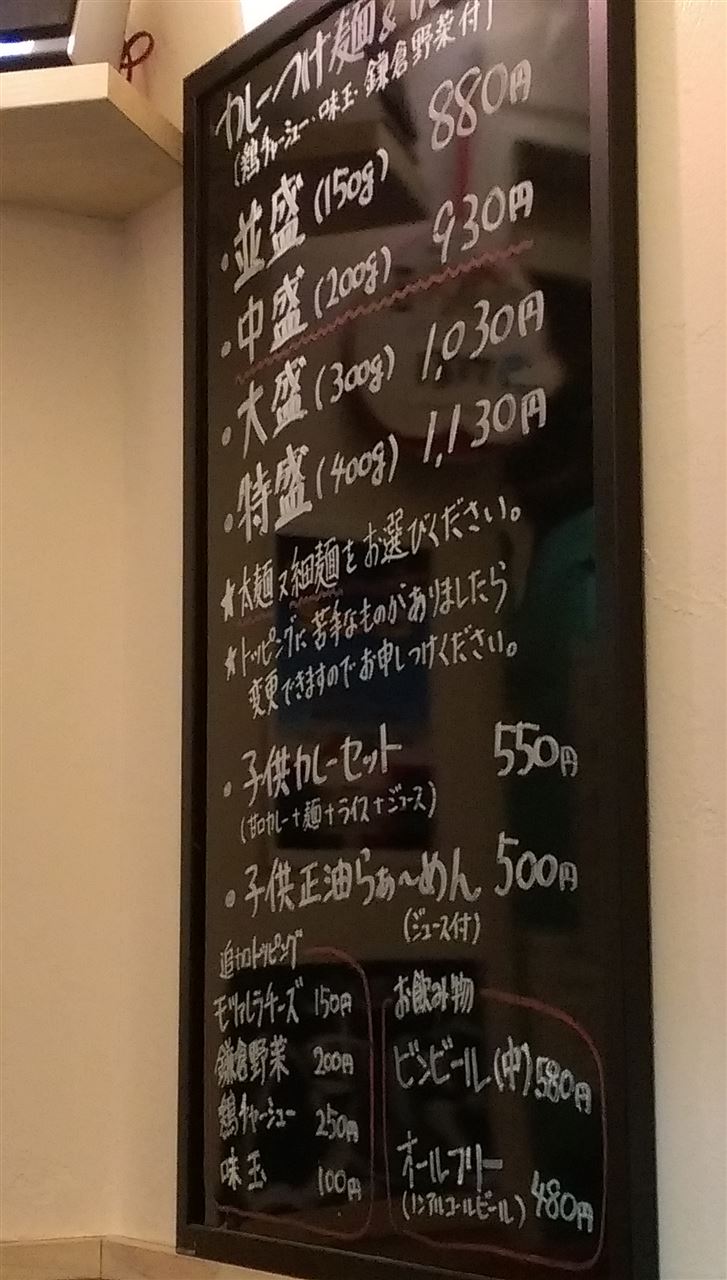 カレーつけ麺&
(鶏チャーシュー・味玉・鎌倉野菜付)
・並盛(150g) 880円
・中盛(200g) 930円
・大盛(300g) 1,030円
・特盛(400g) 1,130円
★太麺又細麺をお選びください。
★トッピングに苦手なものがありましたら
変更できますのでお申しつけください。
・子供カレーセット 550円
(甘口カレー+麺+ライス+ジュース)
・子供正油らぁ〜めん 500円
(ジュース付)
追加トッピング
モッツァレラチーズ 150円
鎌倉野菜 200円
鶏チャーシュー 250円
味玉 100円
お飲み物
ビンビール(中) 580円
オールフリー
(ノンアルコールビール) 480円